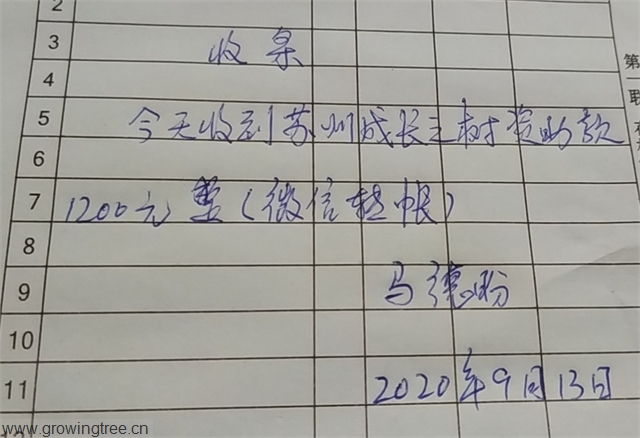 2
3 收条
4
5 今天收到苏州成长之树资助款
6
7 1200元整(微信转帐)
8
9 马德粉
10
11 2020年9月13日
第
一
联
www.growingtree.cn